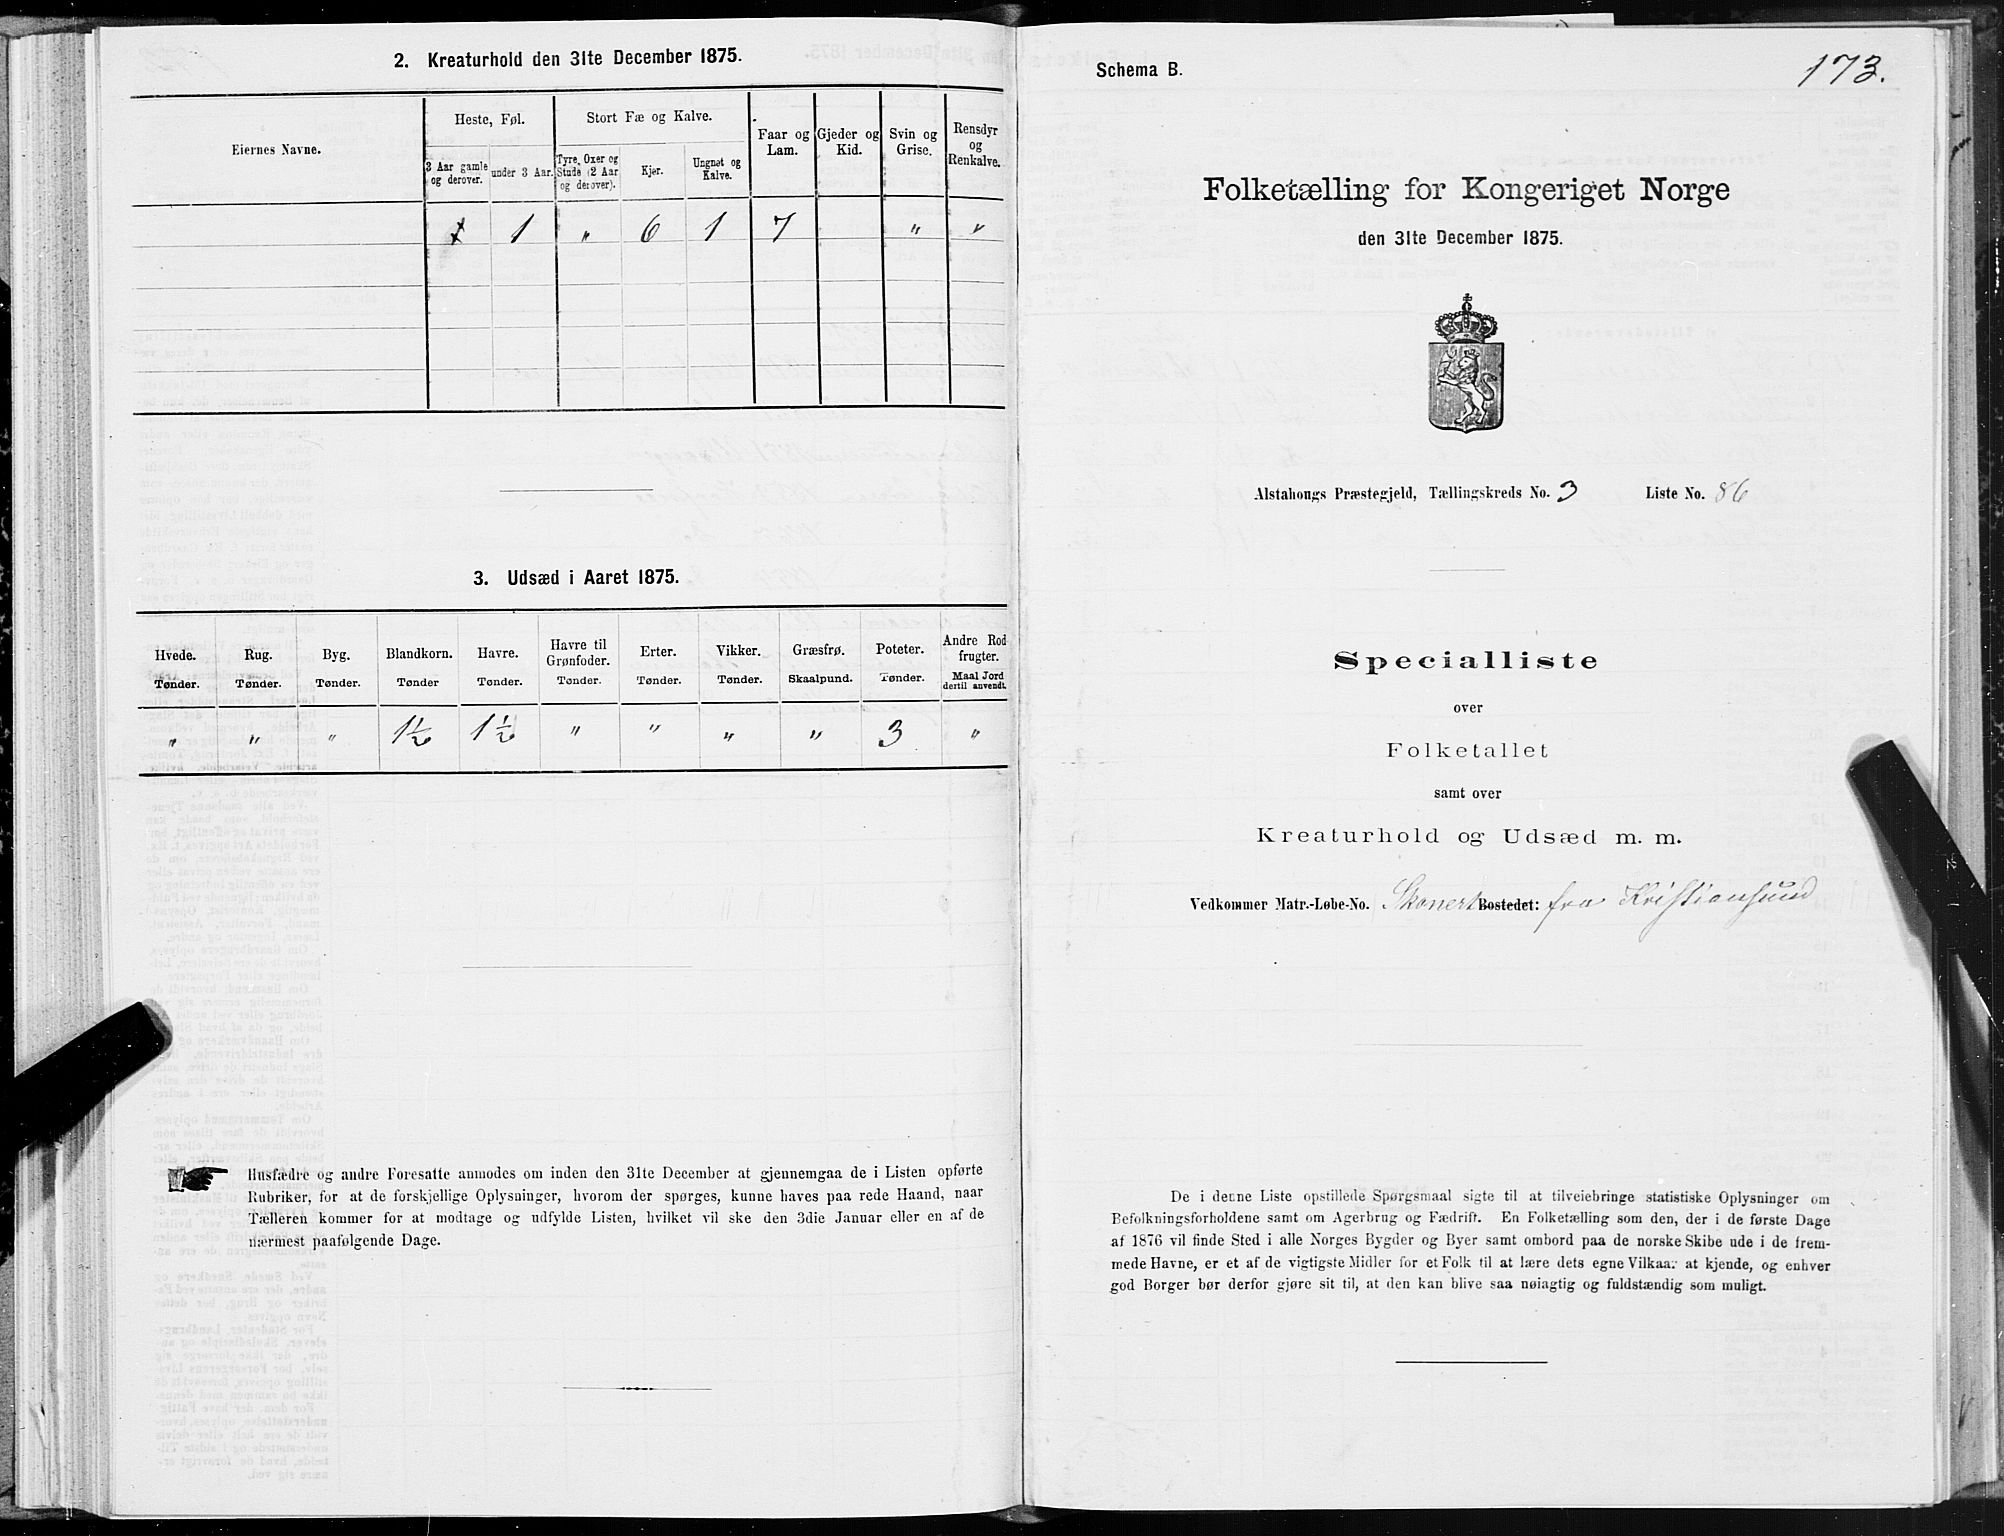 2. Kreaturhold den 31te December 1875.
Eiernes Navne.
Heste, Føl.
Stort Fæ og Kalve.
Faar og Lam.
Gjeder og Kid.
Svin og Grise.
Rensdyr og Renkalve.
3 Aar gamle og derover.
under 3 Aar.
Tyre, Oxer og Stude (2 Aar og derover).
Kjør.
Ungnøt og Kalve.
1 1 " 6 1 7 " "
3. Udsæd i Aaret 1875.
Hvede. Rug. Byg. Blandkorn. Havre. Havre til Grønfoder. Erter. Vikker. Græsfrø. Poteter. Andre Rodfrugter.
Tønder. Tønder. Tønder. Tønder Tønder. Tønder. Tønder. Tønder. Skaalpund. Tønder. Maal Jord dertil anvendt.
" " " 1½ 1½ " " " " 3 "
Husfædre og andre Foresatte anmodes om inden den 31te December at gjennemgaa de i Listen opførte
Rubriker, for at de forskjellige Oplysninger, hvorom der spørges, kunne haves paa rede Haand, naar
Tælleren kommer for at modtage og udfylde Listen, hvilket vil ske den 3die Januar eller en af de
nærmest paafølgende Dage.
Schema B.
173.
Folketælling for Kongeriget Norge
den 31te December 1875.
Alstahougs Præstegjeld, Tællingskreds No. 3 Liste No. 86
Specialliste
over
Folketallet
samt over
Kreaturhold og Udsæd m. m.
Vedkommer Matr.-Løbe-No. Skonert Bostedet: fra Kristiansund
De i denne Liste opstillede Spørgsmaal sigte til at tilveiebringe statistiske Oplysninger om
Befolkningsforholdene samt om Agerbrug og Fædrift. En Folketælling som den, der i de første Dage
af 1876 vil finde Sted i alle Norges Bygder og Byer samt ombord paa de norske Skibe ude i de frem-
mede Havne, er et af de vigtigste Midler for et Folk til at lære dets egne Vilkaar at kjende, og enhver
god Borger bør derfor gjøre sit til, at den kan blive saa nøiagtig og fuldstændig som muligt.